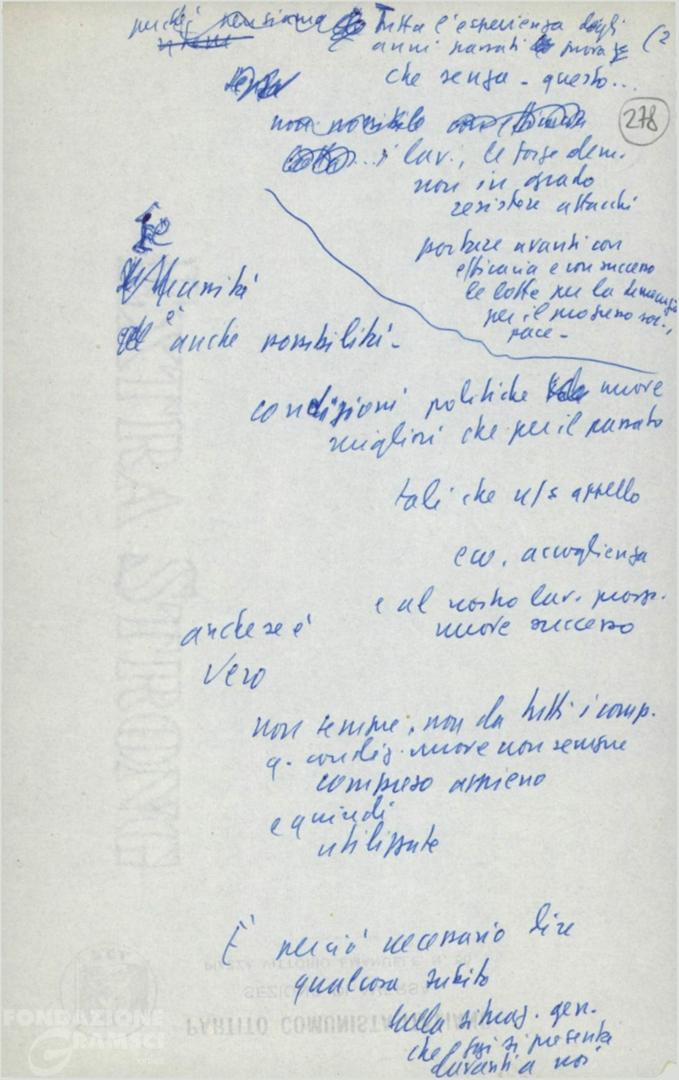 perché pensiamo Tutta l'esperienza degli
anni passati prova (2
che senza - questo...
278
non possibile
i lav., le forze dem.
non in grado
resistere attacchi
portare avanti con
efficacia e con successo
le lotte per la democrazia
per il progresso soc.,
pace -
è
è anche possibilità -
condizioni politiche nuove
migliori che per il passato
tali che n/s appello
accoglienza
e al nostro lav. poss.
nuove successo
anche se è
vero
non sempre, non da tutti i comp.
q. condiz. nuove non sempre
compreso appieno
e quindi
utilizzate
È perciò necessario dire
qualcosa subito
sulla situaz. gen.
che oggi si presenta
davanti a noi
PARTITO COMUNISTA ITALIANO
FONDAZIONE
GRAMSCI